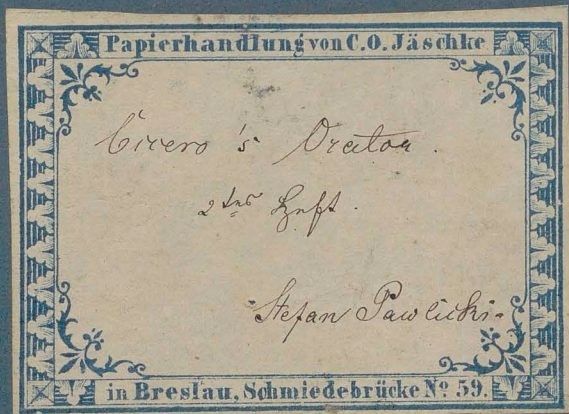 Papierhandlung von C. O. Jäschke
Cicero's Orator.
2tes Heft.
Stefan Pawlicki.
in Breslau, Schmiedebrücke No. 59.